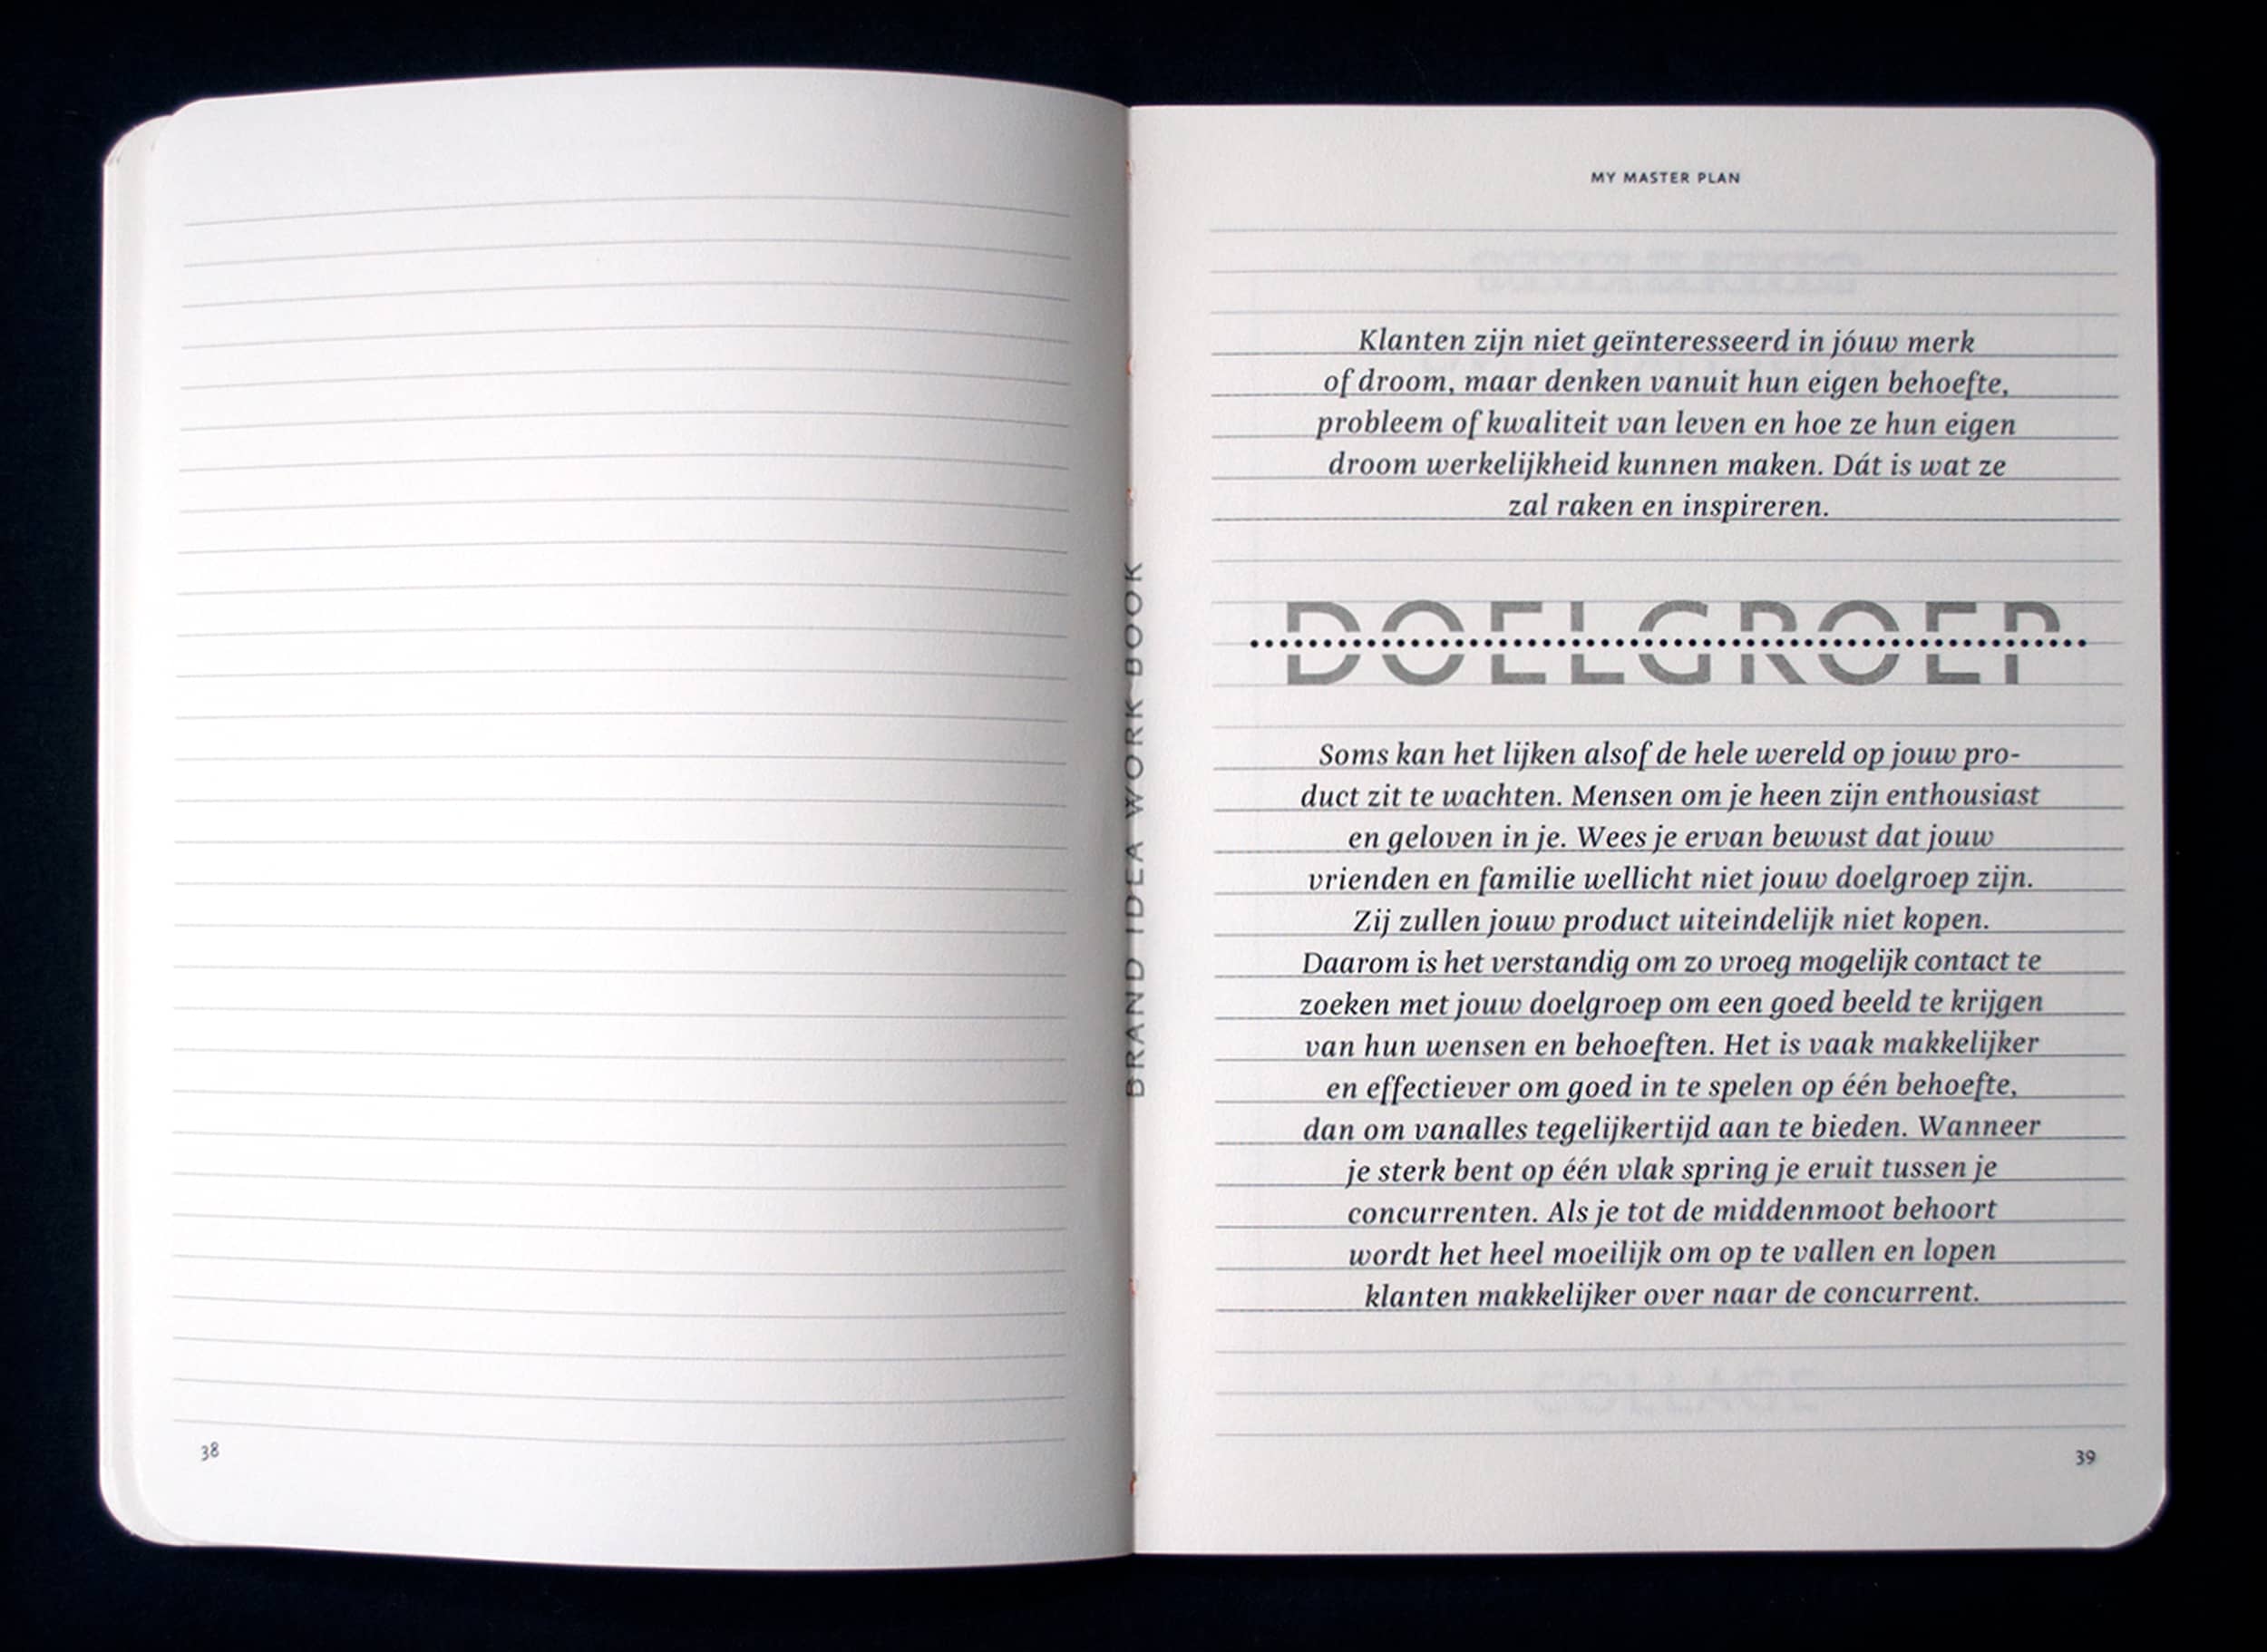 38
BRAND IDEA WORK BOOK
MY MASTER PLAN
Klanten zijn niet geïnteresseerd in jóuw merk
of droom, maar denken vanuit hun eigen behoefte,
probleem of kwaliteit van leven en hoe ze hun eigen
droom werkelijkheid kunnen maken. Dát is wat ze
zal raken en inspireren.
DOELGROEP
Soms kan het lijken alsof de hele wereld op jouw pro-
duct zit te wachten. Mensen om je heen zijn enthousiast
en geloven in je. Wees je ervan bewust dat jouw
vrienden en familie wellicht niet jouw doelgroep zijn.
Zij zullen jouw product uiteindelijk niet kopen.
Daarom is het verstandig om zo vroeg mogelijk contact te
zoeken met jouw doelgroep om een goed beeld te krijgen
van hun wensen en behoeften. Het is vaak makkelijker
en effectiever om goed in te spelen op één behoefte,
dan om vanalles tegelijkertijd aan te bieden. Wanneer
je sterk bent op één vlak spring je eruit tussen je
concurrenten. Als je tot de middenmoot behoort
wordt het heel moeilijk om op te vallen en lopen
klanten makkelijker over naar de concurrent.
39